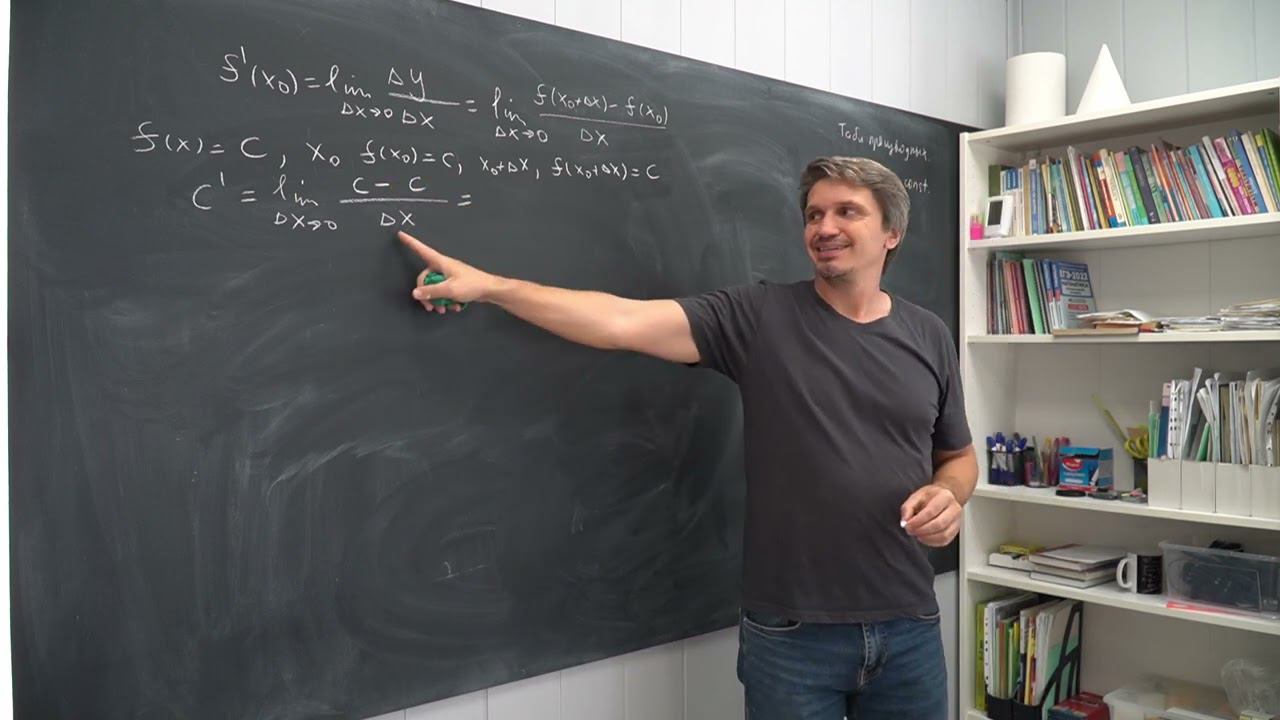 f'(x₀) = lim Δx→0 Δy/Δx = lim Δx→0 (f(x₀+Δx) − f(x₀))/Δx
f(x) = C, x₀ f(x₀) = C, x₀+Δx, f(x₀+Δx) = C
C' = lim Δx→0 (C − C)/Δx =
Табл производных.
const.
ЕГЭ-2022
МАТЕМАТИКА